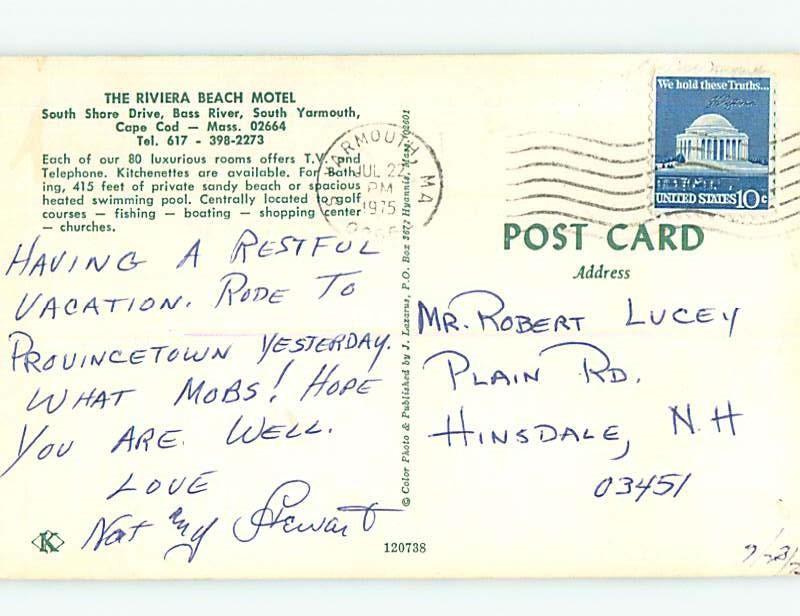 THE RIVIERA BEACH MOTEL
South Shore Drive, Bass River, South Yarmouth,
Cape Cod — Mass. 02664
Tel. 617 - 398-2273
Each of our 80 luxurious rooms offers T.V. and
Telephone. Kitchenettes are available. For Bath-
ing, 415 feet of private sandy beach or spacious
heated swimming pool. Centrally located to golf
courses — fishing — boating — shopping center
— churches.
HAVING A RESTFUL
VACATION. RODE TO
PROVINCETOWN YESTERDAY.
WHAT MOBS! HOPE
YOU ARE WELL.
LOVE
Nat and Stewart
K
© Color Photo & Published by J. Lazarus, P.O. Box 2672 Hyannis, Mass. 02601
120738
YARMOUTH MA
JUL 22
PM
1975
We hold these Truths...
UNITED STATES 10c
POST CARD
Address
MR. ROBERT LUCEY
PLAIN RD.
HINSDALE, N.H
03451